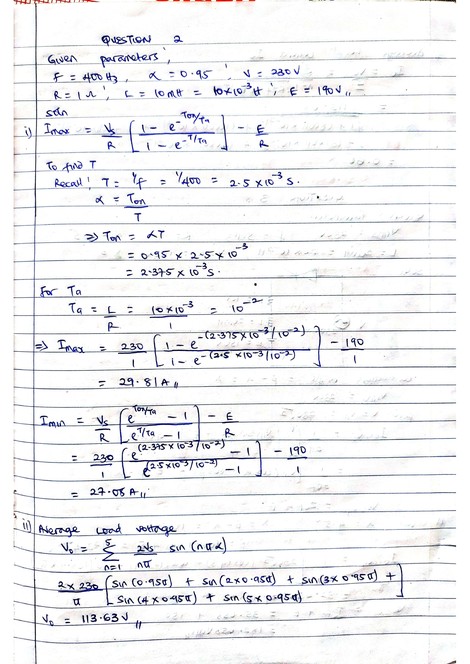 QUESTION 2
Given parameters;
F = 400Hz, α = 0.95 ; V = 230V
R = 1Ω ; L = 10mH = 10×10⁻³H ; E = 190V,,
soln
i) Imax = Vs/R [ (1 - e^(-Ton/Ta)) / (1 - e^(-T/Ta)) ] - E/R
To find T
Recall; T = 1/f = 1/400 = 2.5×10⁻³s.
α = Ton/T
⇒ Ton = αT
= 0.95 × 2.5×10⁻³
= 2.375×10⁻³s.
For Ta
Ta = L/R = 10×10⁻³/1 = 10⁻²
⇒ Imax = 230/1 [ (1 - e^(-(2.375×10⁻³/10⁻²))) / (1 - e^(-(2.5×10⁻³/10⁻²))) ] - 190/1
= 29.81A,,
Imin = Vs/R [ (e^(Ton/Ta) - 1) / (e^(T/Ta) - 1) ] - E/R
= 230/1 [ (e^(2.375×10⁻³/10⁻²) - 1) / (e^(2.5×10⁻³/10⁻²) - 1) ] - 190/1
= 27.08A,,
ii) Average Load voltage
Vo = Σ(n=1 to 5) 2Vs/nπ sin (nπα)
2×230/π [ sin(0.95π) + sin(2×0.95π) + sin(3×0.95π) +
sin(4×0.95π) + sin(5×0.95π) ]
Vo = 113.63V,,